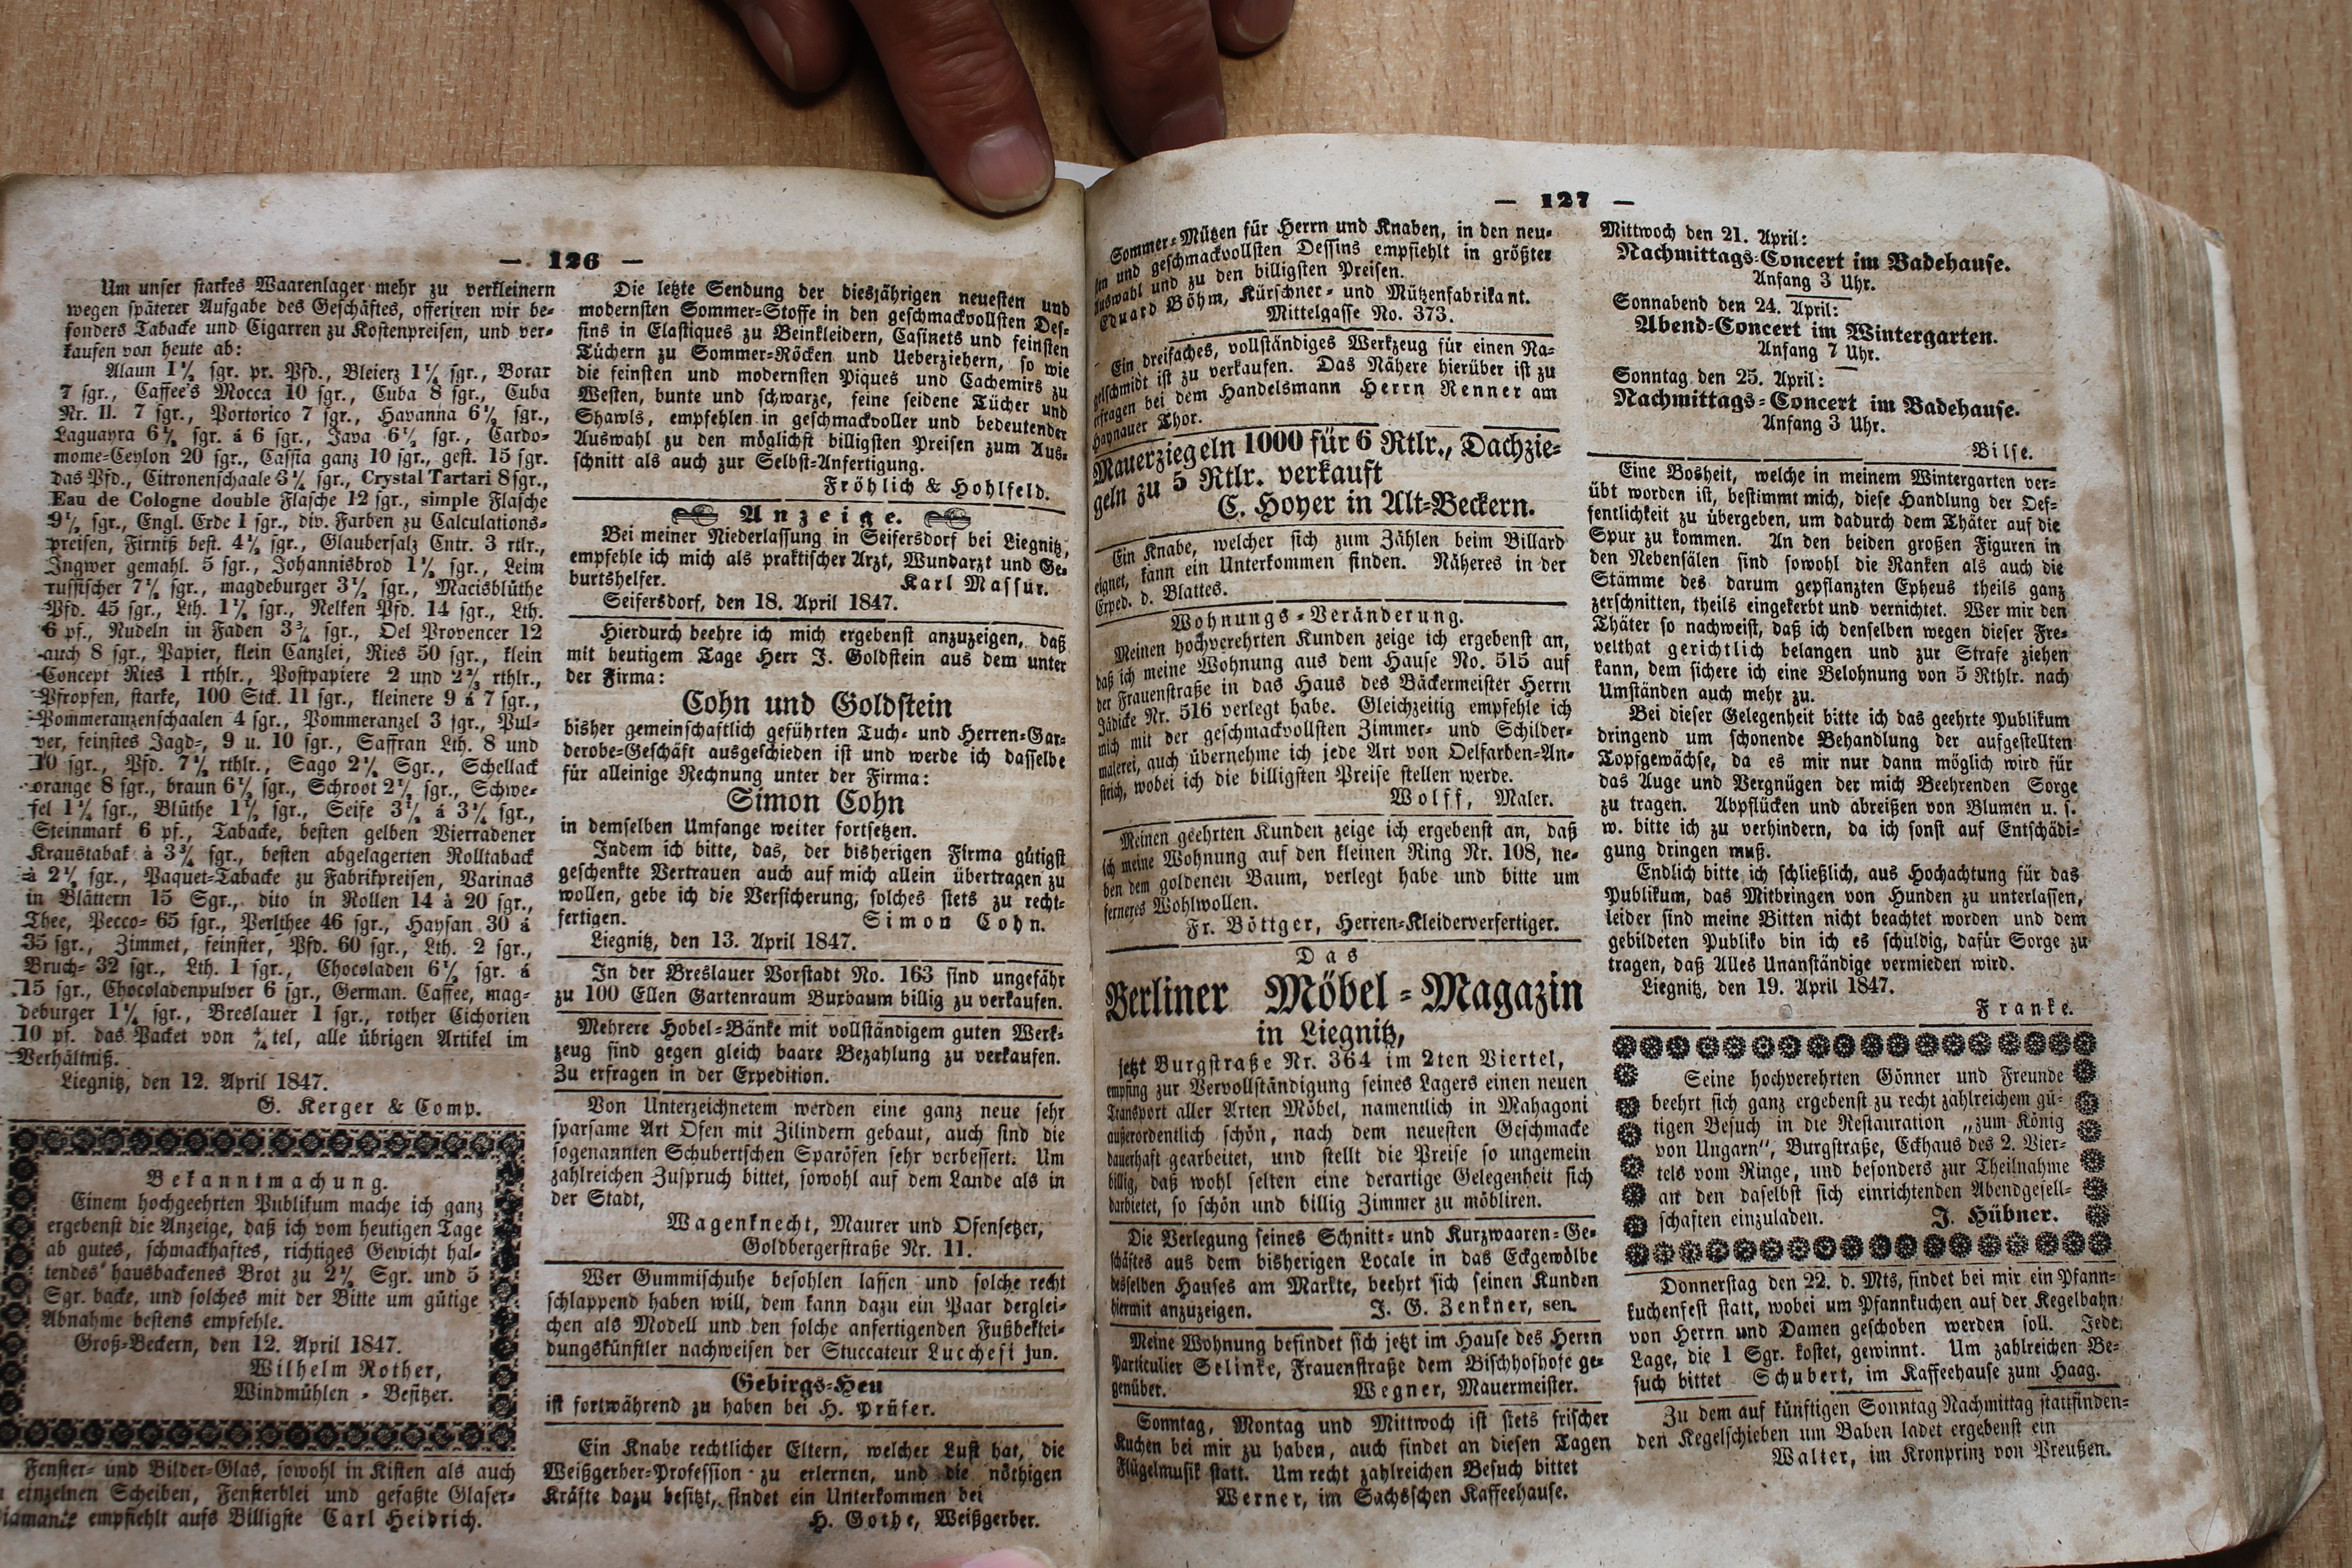 — 126 —
Um unser starkes Waarenlager mehr zu verkleinern
wegen späterer Aufgabe des Geschäftes, offeriren wir be-
sonders Tabacke und Cigarren zu Kostenpreisen, und ver-
kaufen von heute ab:
Alaun 1½ sgr. pr. Pfd., Bleierz 1½ sgr., Borax
7 sgr., Caffee's Mocca 10 sgr., Cuba 8 sgr., Cuba
Nr. II. 7 sgr., Portorico 7 sgr., Havanna 6½ sgr.,
Laguayra 6½ sgr. á 6 sgr., Java 6½ sgr., Cardo-
mome-Ceylon 20 sgr., Cassia ganz 10 sgr., gest. 15 sgr.
das Pfd., Citronenschaale 3½ sgr., Crystal Tartari 8 sgr.,
Eau de Cologne double Flasche 12 sgr., simple Flasche
9½ sgr., Engl. Erde 1 sgr., div. Farben zu Calculations-
preisen, Firniß best. 4½ sgr., Glaubersalz Cntr. 3 rtlr.,
Ingwer gemahl. 5 sgr., Johannisbrod 1½ sgr., Leim
russischer 7½ sgr., magdeburger 3½ sgr., Macisblüthe
Pfd. 45 sgr., Lth. 1½ sgr., Nelken Pfd. 14 sgr., Lth.
6 pf., Nudeln in Faden 3¾ sgr., Oel Provencer 12
auch 8 sgr., Papier, klein Canzlei, Ries 50 sgr., klein
Concept Ries 1 rthlr., Postpapiere 2 und 2⅔ rthlr.,
Pfropfen, starke, 100 Stck. 11 sgr., kleinere 9 á 7 sgr.,
Pommeranzenschaalen 4 sgr., Pommeranzel 3 sgr., Pul-
ver, feinstes Jagd-, 9 u. 10 sgr., Saffran Lth. 8 und
10 sgr., Pfd. 7½ rthlr., Sago 2½ Sgr., Schellack
orange 8 sgr., braun 6½ sgr., Schroot 2½ sgr., Schwe-
fel 1½ sgr., Blüthe 1½ sgr., Seife 3½ á 3¼ sgr.,
Steinmark 6 pf., Tabacke, besten gelben Vierradener
Kraustabak à 3¾ sgr., besten abgelagerten Rolltaback
à 2½ sgr., Paquet-Tabacke zu Fabrikpreisen, Varinas
in Blättern 15 Sgr., dito in Rollen 14 à 20 sgr.,
Thee, Pecco- 65 sgr., Perlthee 46 sgr., Haysan 30 á
35 sgr., Zimmet, feinster, Pfd. 60 sgr., Lth. 2 sgr.,
Bruch- 32 sgr., Lth. 1 sgr., Chocoladen 6½ sgr. á
15 sgr., Chocoladenpulver 6 sgr., German. Caffee, mag-
deburger 1¼ sgr., Breslauer 1 sgr., rother Cichorien
10 pf. das Packet von ¼tel, alle übrigen Artikel im
Verhältniß.
Liegnitz, den 12. April 1847.
G. Kerger & Comp.
Bekanntmachung.
Einem hochgeehrten Publikum mache ich ganz
ergebenst die Anzeige, daß ich vom heutigen Tage
ab gutes, schmackhaftes, richtiges Gewicht hal-
tendes hausbackenes Brot zu 2½ Sgr. und 5
Sgr. backe, und solches mit der Bitte um gütige
Abnahme bestens empfehle.
Groß-Beckern, den 12. April 1847.
Wilhelm Rother,
Windmühlen-Besitzer.
Fenster- und Bilder-Glas, sowohl in Kisten als auch
einzelnen Scheiben, Fensterblei und gefaßte Glaser-
diamante empfiehlt aufs Billigste Carl Heidrich.
Die letzte Sendung der diesjährigen neuesten und
modernsten Sommer-Stoffe in den geschmackvollsten Des-
sins in Elastiques zu Beinkleidern, Casinets und feinsten
Tüchern zu Sommer-Röcken und Ueberziehern, so wie
die feinsten und modernsten Piques und Cachemirs zu
Westen, bunte und schwarze, feine seidene Tücher und
Shawls, empfehlen in geschmackvoller und bedeutender
Auswahl zu den möglichst billigsten Preisen zum Aus-
schnitt als auch zur Selbst-Anfertigung.
Fröhlich & Hohlfeld.
Anzeige.
Bei meiner Niederlassung in Seifersdorf bei Liegnitz,
empfehle ich mich als praktischer Arzt, Wundarzt und Ge-
burtshelfer. Karl Massur.
Seifersdorf, den 18. April 1847.
Hierdurch beehre ich mich ergebenst anzuzeigen, daß
mit heutigem Tage Herr J. Goldstein aus dem unter
der Firma:
Cohn und Goldstein
bisher gemeinschaftlich geführten Tuch- und Herren-Gar-
derobe-Geschäft ausgeschieden ist und werde ich dasselbe
für alleinige Rechnung unter der Firma:
Simon Cohn
in demselben Umfange weiter fortsetzen.
Indem ich bitte, das, der bisherigen Firma gütigst
geschenkte Vertrauen auch auf mich allein übertragen zu
wollen, gebe ich die Versicherung, solches stets zu recht-
fertigen. Simon Cohn.
Liegnitz, den 13. April 1847.
In der Breslauer Vorstadt No. 163 sind ungefähr
zu 100 Ellen Gartenraum Buxbaum billig zu verkaufen.
Mehrere Hobel-Bänke mit vollständigem guten Werk-
zeug sind gegen gleich baare Bezahlung zu verkaufen.
Zu erfragen in der Expedition.
Von Unterzeichnetem werden eine ganz neue sehr
sparsame Art Ofen mit Zilindern gebaut, auch sind die
sogenannten Schubertschen Sparöfen sehr verbessert. Um
zahlreichen Zuspruch bittet, sowohl auf dem Lande als in
der Stadt,
Wagenknecht, Maurer und Ofensetzer,
Goldbergerstraße Nr. 11.
Wer Gummischuhe besohlen lassen und solche recht
schlappend haben will, dem kann dazu ein Paar derglei-
chen als Modell und den solche anfertigenden Fußbeklei-
dungskünstler nachweisen der Stuccateur Lucchesi jun.
Gebirgs-Heu
ist fortwährend zu haben bei H. Prüfer.
Ein Knabe rechtlicher Eltern, welcher Lust hat, die
Weißgerber-Profession zu erlernen, und die nöthigen
Kräfte dazu besitzt, findet ein Unterkommen bei
H. Gothe, Weißgerber.
— 127 —
Sommer-Mützen für Herrn und Knaben, in den neu-
sten und geschmackvollsten Dessins empfiehlt in größter
Auswahl und zu den billigsten Preisen.
Eduard Böhm, Kürschner- und Mützenfabrikant.
Mittelgasse No. 373.
Ein dreifaches, vollständiges Werkzeug für einen Na-
gelschmidt ist zu verkaufen. Das Nähere hierüber ist zu
erfragen bei dem Handelsmann Herrn Renner am
Haynauer Thor.
Mauerziegeln 1000 für 6 Rtlr., Dachzie-
geln zu 5 Rtlr. verkauft
C. Hoyer in Alt-Beckern.
Ein Knabe, welcher sich zum Zählen beim Billard
eignet, kann ein Unterkommen finden. Näheres in der
Exped. d. Blattes.
Wohnungs-Veränderung.
Meinen hochverehrten Kunden zeige ich ergebenst an,
daß ich meine Wohnung aus dem Hause No. 515 auf
der Frauenstraße in das Haus des Bäckermeister Herrn
Jädicke Nr. 516 verlegt habe. Gleichzeitig empfehle ich
mich mit der geschmackvollsten Zimmer- und Schilder-
malerei, auch übernehme ich jede Art von Oelfarben-An-
strich, wobei ich die billigsten Preise stellen werde.
Wolff, Maler.
Meinen geehrten Kunden zeige ich ergebenst an, daß
ich meine Wohnung auf den kleinen Ring Nr. 108, ne-
ben dem goldenen Baum, verlegt habe und bitte um
ferneres Wohlwollen.
Fr. Böttger, Herren-Kleiderverfertiger.
Das
Berliner Möbel-Magazin
in Liegnitz,
jetzt Burgstraße Nr. 364 im 2ten Viertel,
empfing zur Vervollständigung seines Lagers einen neuen
Transport aller Arten Möbel, namentlich in Mahagoni
außerordentlich schön, nach dem neuesten Geschmacke
dauerhaft gearbeitet, und stellt die Preise so ungemein
billig, daß wohl selten eine derartige Gelegenheit sich
darbietet, so schön und billig Zimmer zu möbliren.
Die Verlegung seines Schnitt- und Kurzwaaren-Ge-
schäftes aus dem bisherigen Locale in das Eckgewölbe
desselben Hauses am Markte, beehrt sich seinen Kunden
hiermit anzuzeigen. J. G. Zenkner, sen.
Meine Wohnung befindet sich jetzt im Hause des Herrn
Particulier Selinke, Frauenstraße dem Bischhofhofe ge-
genüber. Wegner, Mauermeister.
Sonntag, Montag und Mittwoch ist stets frischer
Kuchen bei mir zu haben, auch findet an diesen Tagen
Flügelmusik statt. Um recht zahlreichen Besuch bittet
Werner, im Sachsschen Kaffeehause.
Mittwoch den 21. April:
Nachmittags-Concert im Badehause.
Anfang 3 Uhr.
Sonnabend den 24. April:
Abend-Concert im Wintergarten.
Anfang 7 Uhr.
Sonntag den 25. April:
Nachmittags-Concert im Badehause.
Anfang 3 Uhr.
Bilse.
Eine Bosheit, welche in meinem Wintergarten ver-
übt worden ist, bestimmt mich, diese Handlung der Oef-
fentlichkeit zu übergeben, um dadurch dem Thäter auf die
Spur zu kommen. An den beiden großen Figuren in
den Nebensälen sind sowohl die Ranken als auch die
Stämme des darum gepflanzten Epheus theils ganz
zerschnitten, theils eingekerbt und vernichtet. Wer mir den
Thäter so nachweist, daß ich denselben wegen dieser Fre-
velthat gerichtlich belangen und zur Strafe ziehen
kann, dem sichere ich eine Belohnung von 5 Rthlr. nach
Umständen auch mehr zu.
Bei dieser Gelegenheit bitte ich das geehrte Publikum
dringend um schonende Behandlung der aufgestellten
Topfgewächse, da es mir nur dann möglich wird für
das Auge und Vergnügen der mich Beehrenden Sorge
zu tragen. Abpflücken und abreißen von Blumen u. s.
w. bitte ich zu verhindern, da ich sonst auf Entschädi-
gung dringen muß.
Endlich bitte ich schließlich, aus Hochachtung für das
Publikum, das Mitbringen von Hunden zu unterlassen,
leider sind meine Bitten nicht beachtet worden und dem
gebildeten Publiko bin ich es schuldig, dafür Sorge zu
tragen, daß Alles Unanständige vermieden wird.
Liegnitz, den 19. April 1847.
Franke.
Seine hochverehrten Gönner und Freunde
beehrt sich ganz ergebenst zu recht zahlreichem gü-
tigen Besuch in die Restauration „zum König
von Ungarn“, Burgstraße, Eckhaus des 2. Vier-
tels vom Ringe, und besonders zur Theilnahme
an den daselbst sich einrichtenden Abendgesell-
schaften einzuladen. J. Hübner.
Donnerstag den 22. d. Mts, findet bei mir ein Pfann-
kuchenfest statt, wobei um Pfannkuchen auf der Kegelbahn
von Herrn und Damen geschoben werden soll. Jede
Lage, die 1 Sgr. kostet, gewinnt. Um zahlreichen Be-
such bittet Schubert, im Kaffeehause zum Haag.
Zu dem auf künftigen Sonntag Nachmittag stattfinden-
den Kegelschieben um Baben ladet ergebenst ein
Walter, im Kronprinz von Preußen.